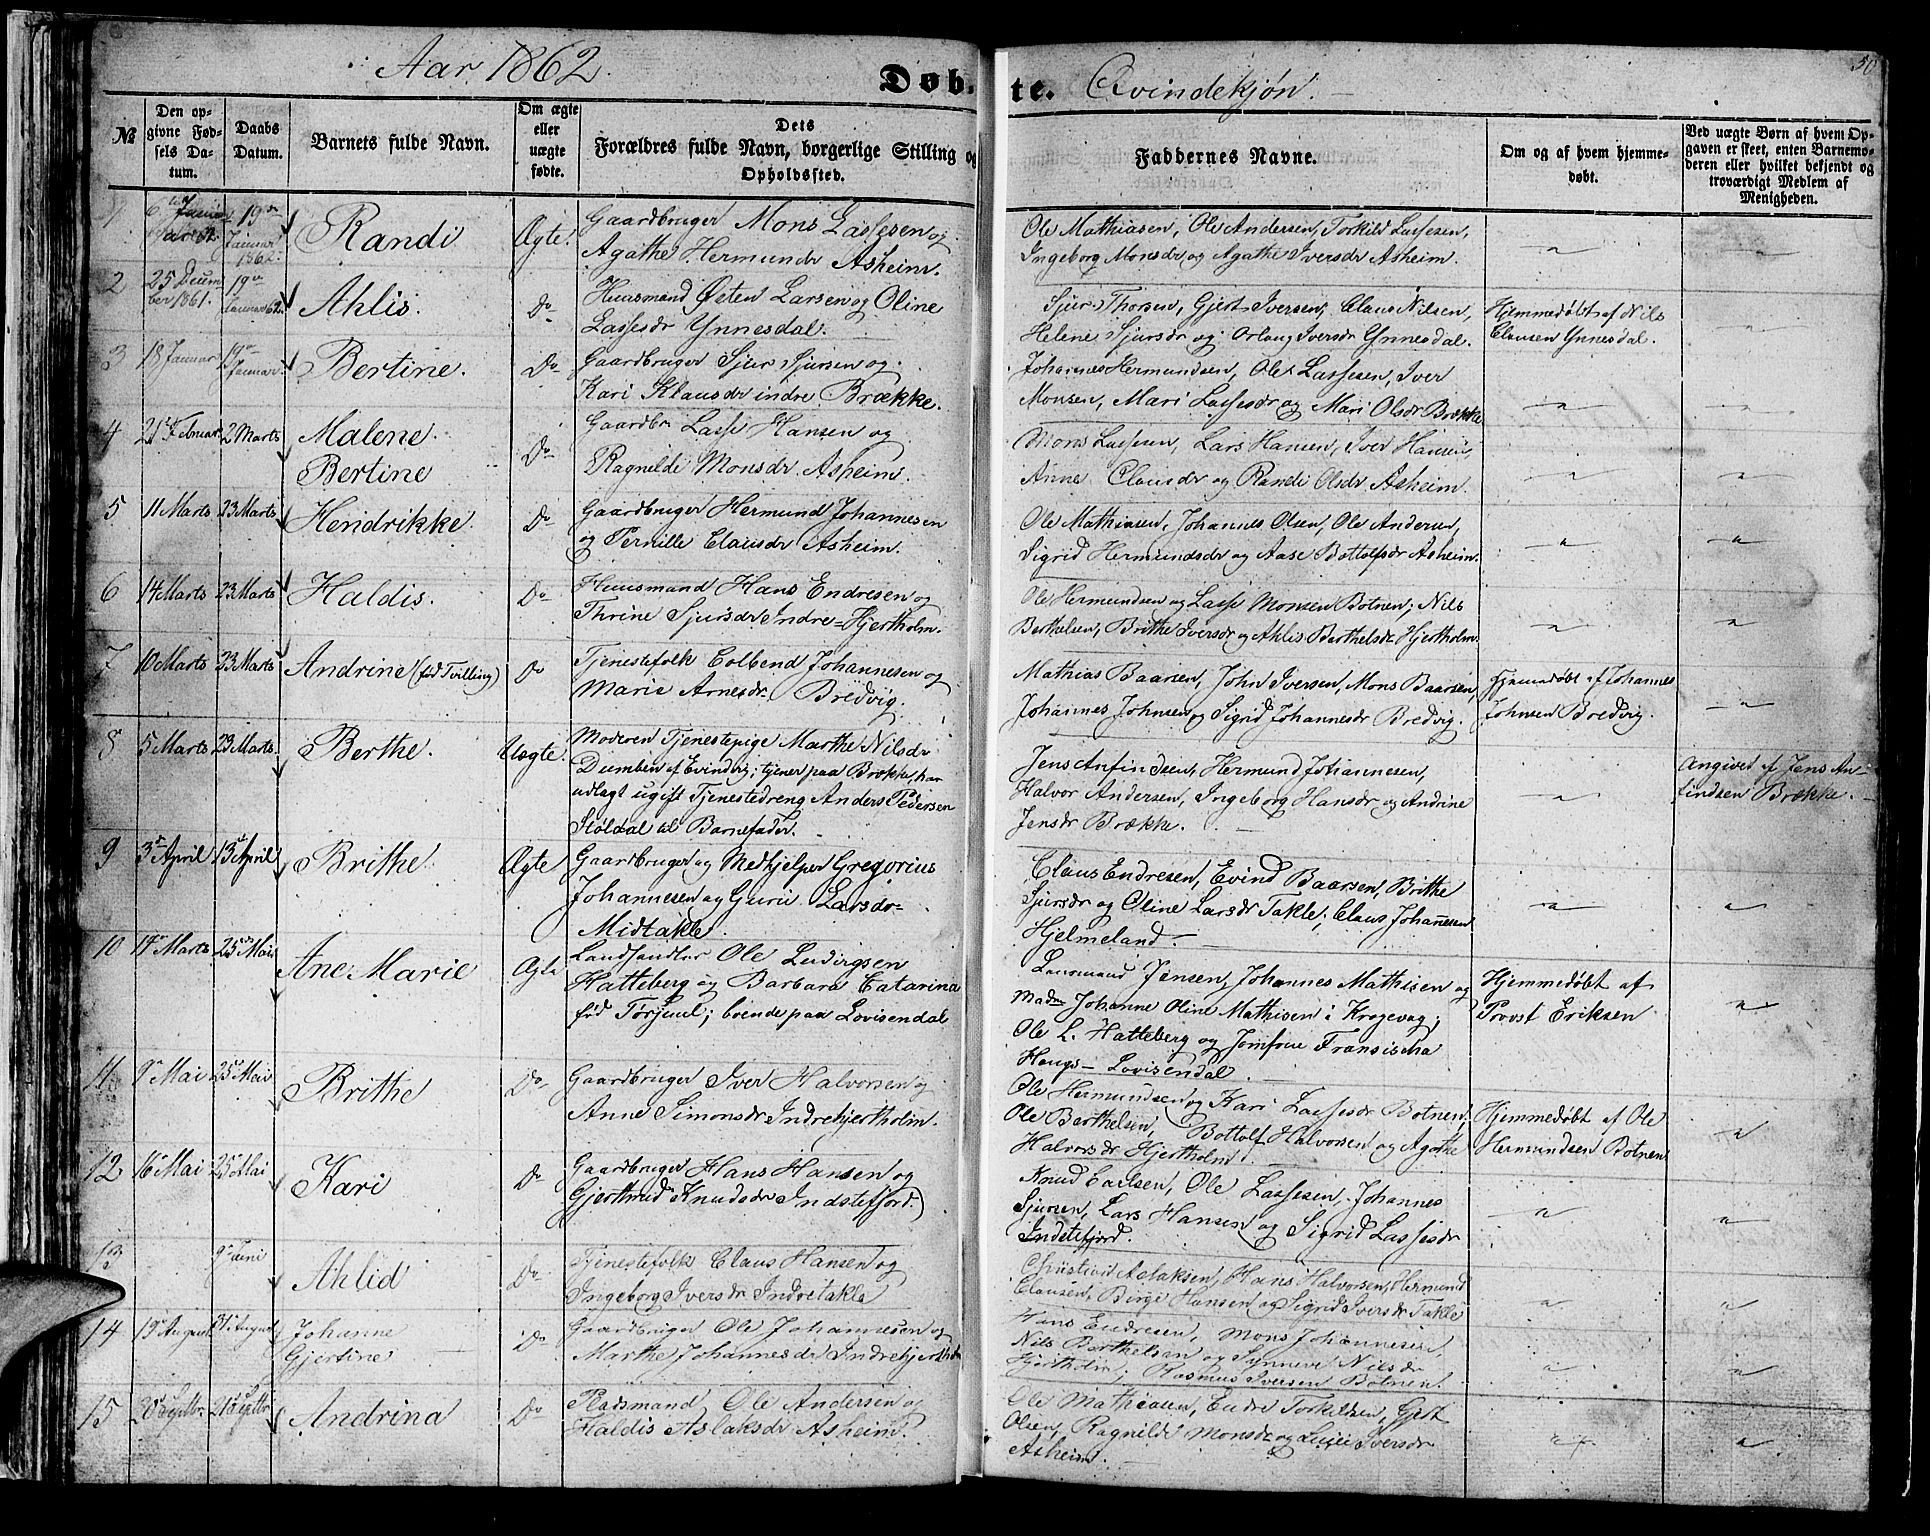 Aar 1862.
Døb-
te. Qvindekjøn.
50
№
Den op-
givne Fød-
sels Da-
tum.
Daabs
Datum.
Barnets fulde Navn.
Om ægte
eller
uægte
fødte.
Dets
Forældres fulde Navn, borgerlige Stilling og
Opholdssted.
Faddernes Navne.
Om og af hvem hjemme-
døbt.
Ved uægte Børn af hvem Op-
gaven er skeet, enten Barnemo-
deren eller hvilket bekjendt og
troværdigt Medlem af
Menigheden.
1
6
19de
Januar
1862.
Randi
Ægte.
Gaardbruger Mons Lassesen og
Agathe Hermundsdr Asheim.
Ole Mathiasen, Ole Andersen, Torkild Lassesen,
Ingeborg Monsdr og Agathe Iversdr Asheim.
2
25 Decem
ber 1861.
19de
Januar 62.
Ahlis.
Do
Huusmand Østen Larsen og Oline
Lassesdr Ynnesdal.
Sjur Thorsen, Gjert Iversen, Claus Nilsen,
Helene Sjursdr og Orlaug Iversdr Ynnesdal.
Hjemmedøbt af Nils
Clausen Ynnesdal.
3
18 Januar
19de
Januar
Bertine.
Do
Gaardbruger Sjur Sjursen og
Kari Klausdr indre Brække.
Johannes Hermundsen, Ole Lassesen, Iver
Monsen, Mari Lassesdr og Mari Olsdr Brække
4
21 Februar
2 Marts
Malene
Bertine
Do
Gaardbr. Lasse Hansen og
Ragnilde Monsdr Asheim.
Mons Lassesen, Lars Hansen, Iver Hansen,
Anne Clausdr og Randi Olsdr Asheim.
5
11 Marts
23 Marts
Hendrikke
Do
Gaardbruger Hermund Johannesen
og Pernille Clausdr Asheim.
Ole Mathiasen, Johannes Olsen, Ole Andersen,
Sigrid Hermundsdr og Aase Bottolfsdr Asheim.
6
14 Marts
23 Marts
Haldis.
Do
Huusmand Hans Endresen og
Thrine Sjursdr Indre-Hjertholm.
Ole Hermundsen og Lasse Monsen Botnen; Nils
Berthelsen, Brithe Iversdr og Ahlis Barthelsdr Hjertholm.
7
10 Marts
23 Marts
Andrine (fød Tvilling)
Do
Tjenestefolk Colbend Johannesen og
Marie Arnesdr Bredvig.
Mathias Baarsen, John Iversen, Mons Baarsen,
Johannes Johnsen og Sigrid Johannesdr Bredvig.
Hjemmedøbt af Johannes
Johnsen Bredvig.
8
5 Marts
23 Marts
Berthe.
Uægte.
Moderen Tjenestepige Marthe Nilsdr
Dumben af Evindvig; tjener paa Brække, har
udlagt ugift Tjenestedreng Anders Pedersen
Støldal til Barnefader.
Jens Anfindsen, Hermund Johannesen,
Halvor Andersen, Ingeborg Hansdr og Andrine
Jensdr Brække.
Angivet af Jens An-
findsen Brække.
9
3de April
13de April
Brithe.
Ægte
Gaardbruger og Medhjelper Gregorius
Johannesen og Guru Larsdr
Midtakle.
Claus Endresen, Evind Baarsen, Brithe
Sjursdr og Oline Larsdr Takle; Claus Johannesen
Hjelmeland.
10
17 Marts
25de Mai
Ane Marie
Ægte
Landhandler Ole Ludvigsen
Hatteberg og Barbara Catarina
fød Torjeul; boende paa Lovisendal
Lensmand Jensen, Johannes Mathisen og
Madm Johanne Oline Mathisen i Krogevaag;
Ole L. Hatteberg og Jomfrue Fransischa
Haugs- Lovisendal.
Hjemmedøbt af
Provst Eriksen
11
9de Mai
25de Mai
Brithe
Do
Gaardbruger Iver Halvorsen og
Anne Simonsdr Indrehjertholm.
Ole Hermundsen og Kari Lassesdr Botnen;
Ole Berthelsen, Bottolf Halvorsen og Agathe
Halvorsdr Hjertholm.
Hjemmedøbt af Ole
Hermundsen Botnen
12
16de Mai
25de Mai
Kari
Do
Gaardbruger Hans Hansen og
Gjertrud Knudsdr Indstefjord.
Knud Carlsen, Ole Lassesen, Johannes
Sjursen, Lars Hansen og Sigrid Lassesdr
Indetefjord.
13
9de Juni
Ahlid
Do
Tjenestefolk Claus Hansen og
Ingeborg Iversdr Indretakle
Christian Aslaksen, Hans Halvorsen, Hermund
Clausen, Børge Hansen og Sigrid Iversdr Takle
14
19de August
31te August
Johanne
Gjertine
Do
Gaardbruger Ole Johannesen og
Marthe Johannesdr Indrehjertholm
Hans Endresen, Mons Johannesen,
Nils Berthelsen og Synneve Nilsdr
Hjertholm; Rasmus Iversen Botnen.
15
21de Septbr
Andrina
Do
Pladsmand Ole Andersen og
Haldis Aslaksdr Asheim.
Ole Mathiasen, Endre Torkildsen, Gjert
Olsen, Ragnilde Monsdr og Iversdr
Asheim.